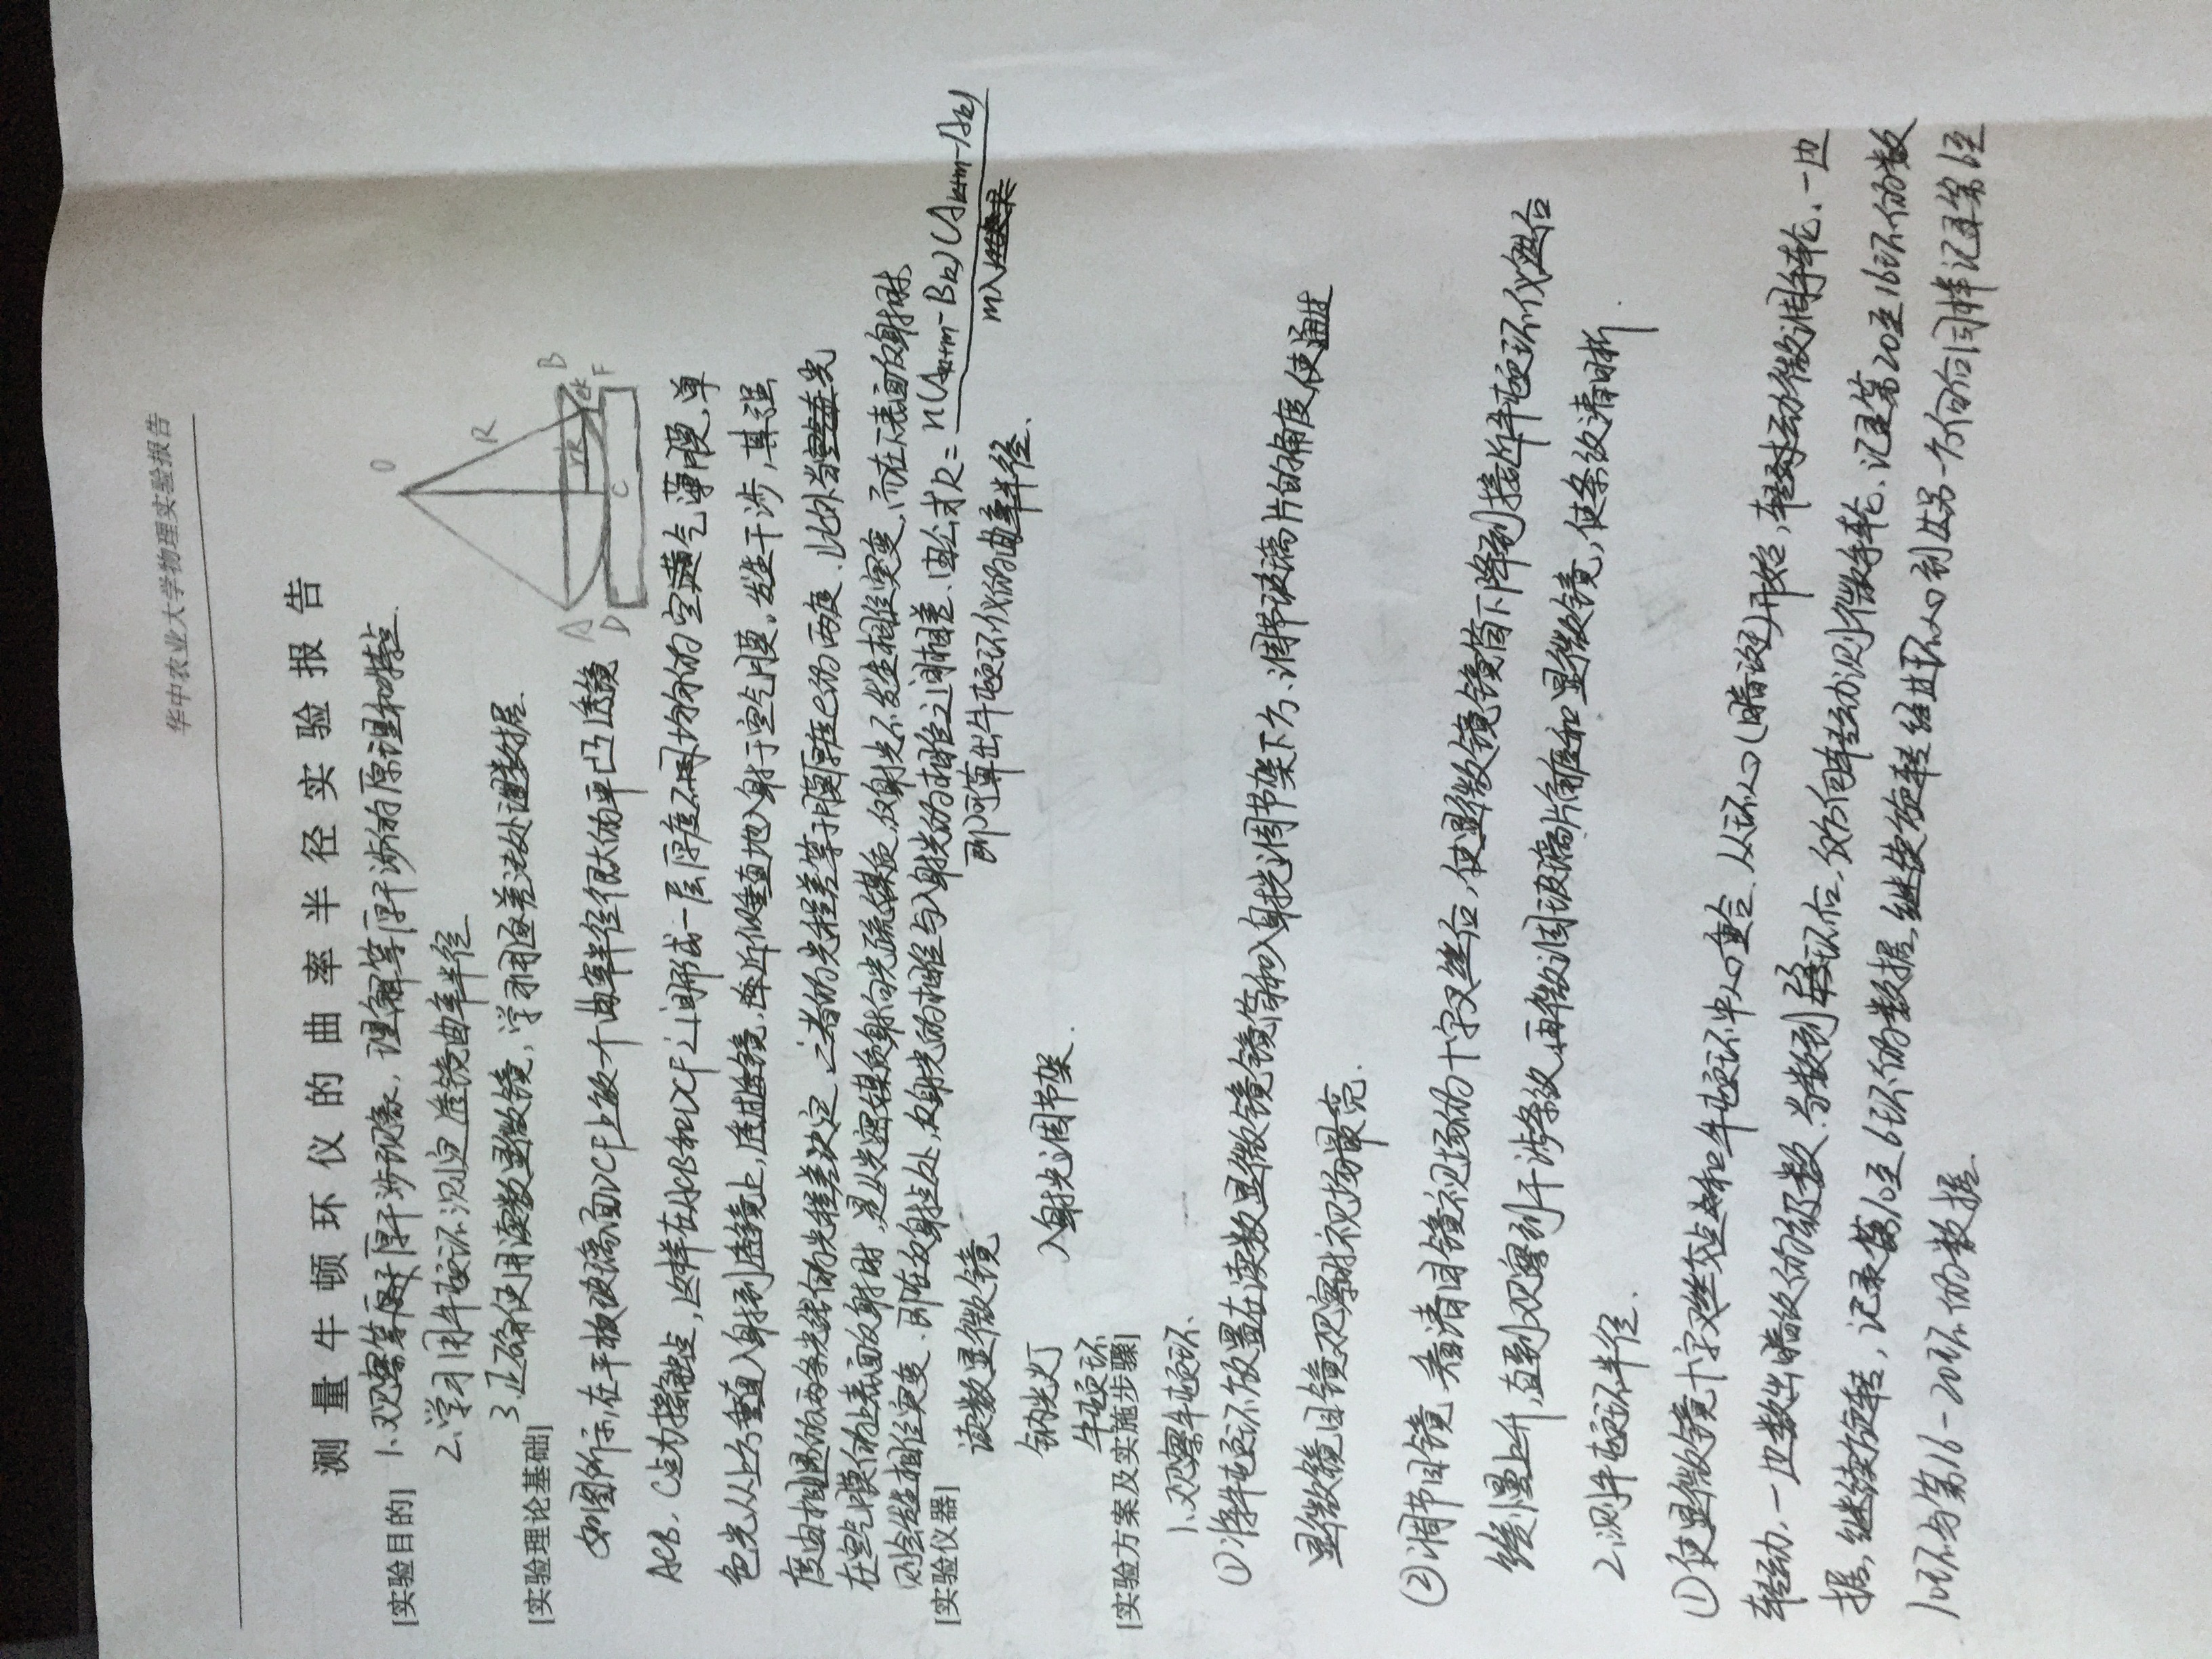 华中农业大学物理实验报告
测量牛顿环仪的曲率半径实验报告
[实验目的] 1.观察等厚干涉现象，理解等厚干涉的原理和特点.
2.学习用牛顿环测定透镜曲率半径
3.正确使用读数显微镜，学习用逐差法处理数据.
[实验理论基础]
O
R
A
B
rk
ek
D
C
F
如图所示,在平板玻璃面DCF上放一个曲率半径很大的平凸透镜
ACB，C点为接触点,这样在ACB和DCF之间形成一层厚度不均匀的空气薄膜,单
色光从上方垂直入射到透镜上,透过透镜,近似垂直地入射于空气膜。发生干涉,其强
度由相遇的两条光线的光程差决定.二者的光程差等于膜厚度e的两度.此外当光
在空气膜的上表面反射时,是从光密媒质射向光疏媒质,反射光不发生相位突变,而在下表面反射时,
则会发生相位突变.即在反射点处,反射光的相位与入射光的相位之间相差.由公式R=n(Ak+m-Bk)(Ak+m-Ak)/mλ
即可算出牛顿环仪的曲率半径.
[实验仪器]
读数显微镜
钠光灯 入射光调节架.
牛顿环
[实验方案及实施步骤]
1.观察牛顿环.
①将牛顿环放置在读数显微镜镜筒和入射光调节架下方、调节玻璃片的角度,使通过
显微镜目镜观察时视场最亮.
②调节目镜,看清目镜视场的十字叉丝后,使显微镜镜筒下降到接近牛顿环仪然后
缓慢上升,直到观察到干涉条纹,再微调玻璃片角度和显微镜,使条纹清晰.
2.测牛顿环半径.
①使显微镜十字叉丝交点和牛顿环中心重合.从环心(暗斑)开始,转动微调手轮.一边
转动.一边数出暗纹的级数.当数到环后,反方向转动测微手轮.记录第20至16环的数
据,继续旋转,记录第10至6环的数据,继续旋转经过环心到另一方向后同样记录第6至
10环与第16-20环的数据.